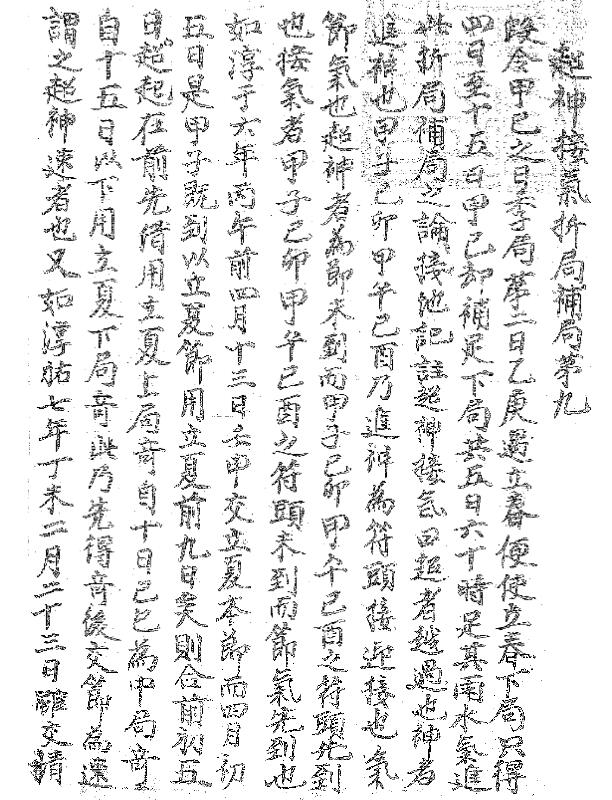 超神接氣折局補局第九
假令甲己之日季局第二日乙庚過立春便使立春下局只得
四日至十五日甲己却補足下局共五日六十時足其雨水氣進
此折局補局之論接池記註超神接氣曰超者越過也神者
進神也甲子己卯甲午己酉乃進神為符頭接迎接也氣
節氣也超神者為節未到而甲子己卯甲午己酉之符頭先到
也接氣者甲子己卯甲午己酉之符頭未到而節氣先到也
如淳于六年丙午前四月十三日壬申交立夏本節而四月初
五日是甲子既到以立夏節用立夏前九日矣則合前初五
日超起在前先借用立夏上局奇自十日己巳為中局奇
自十五日以下用立夏下局奇此乃先得奇後交節為速
謂之超神速者也又如淳祐七年丁未二月二十三日雖交清